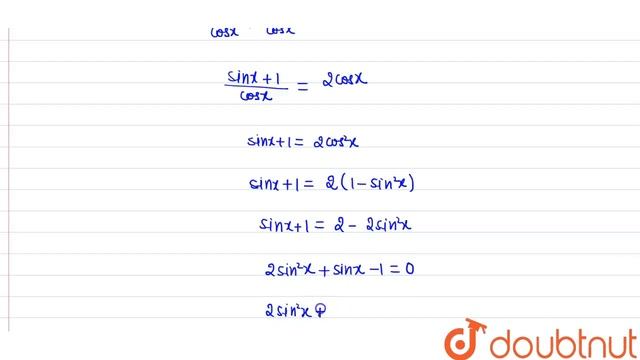 cosx cosx
sinx+1 / cosx = 2cosx
sinx+1 = 2cos²x
sinx+1 = 2(1-sin²x)
sinx+1 = 2 - 2sin²x
2sin²x + sinx -1 = 0
2sin²x +
doubtnut